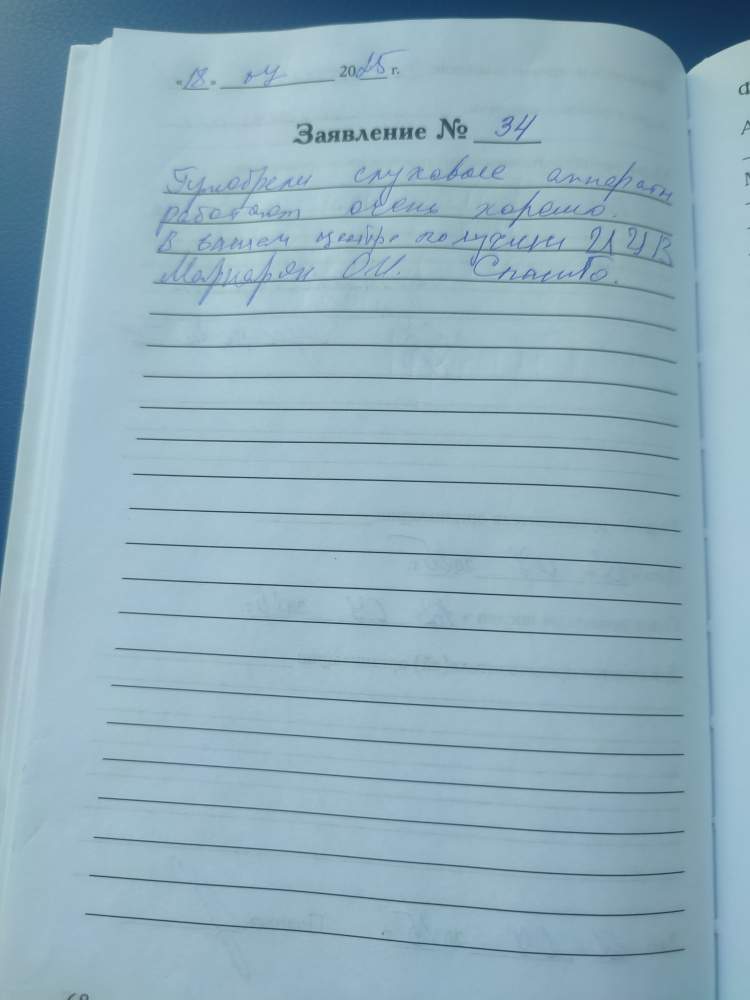 «18» 04 2025 г.
Заявление № 34
слуховые аппараты
работают очень хорошо.
В вашем центре получили
О.И. Спасибо.
68